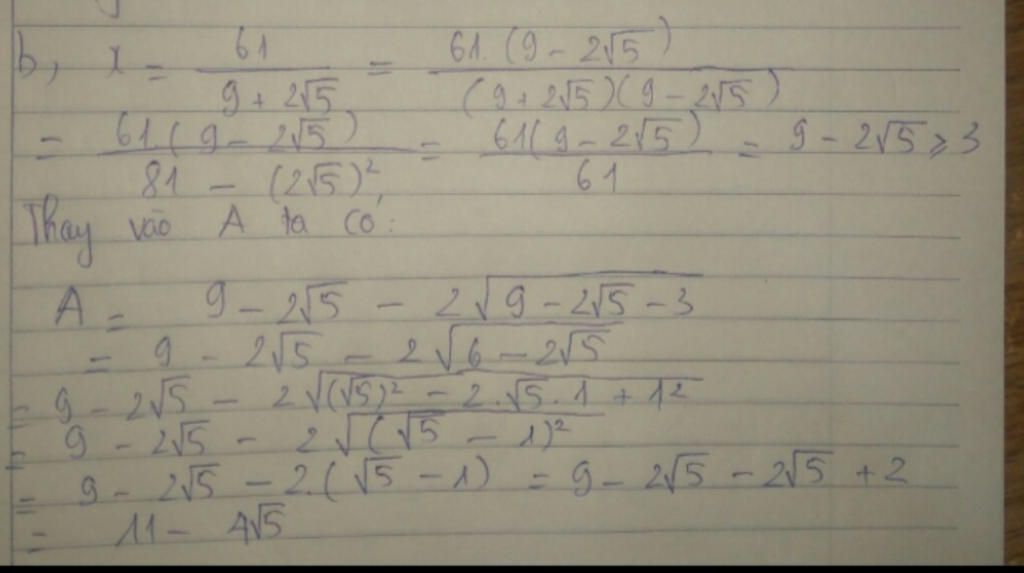 b, x = 61 / (9 + 2√5) = 61.(9 - 2√5) / ((9 + 2√5)(9 - 2√5))
= 61.(9 - 2√5) / (81 - (2√5)²) = 61(9 - 2√5) / 61 = 9 - 2√5 ⩾ 3
Thay vào A ta có:
A = 9 - 2√5 - 2√(9 - 2√5 - 3)
= 9 - 2√5 - 2√(6 - 2√5)
= 9 - 2√5 - 2√((√5)² - 2.√5.1 + 1²)
= 9 - 2√5 - 2√((√5 - 1)²)
= 9 - 2√5 - 2.(√5 - 1) = 9 - 2√5 - 2√5 + 2
= 11 - 4√5